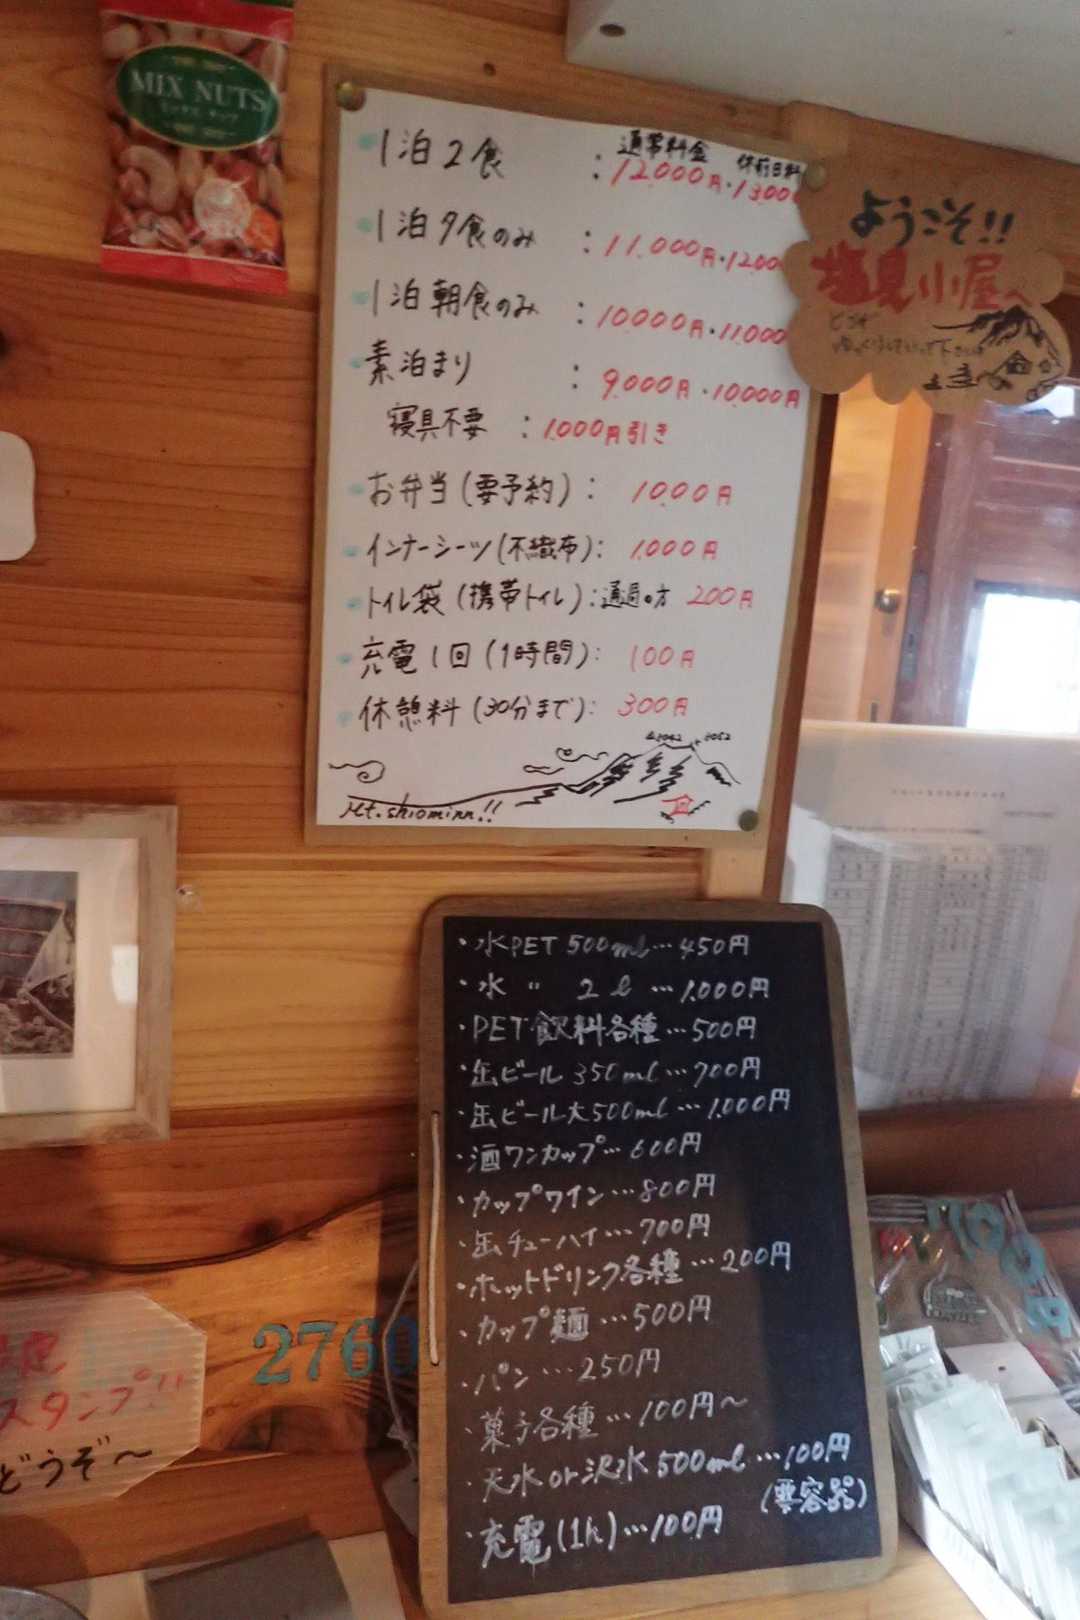 MIX NUTS
通常料金 休前日料
・1泊2食 : 12,000円・13,000
・1泊夕食のみ : 11,000円・12,000
・1泊朝食のみ : 10,000円・11,000
・素泊まり : 9,000円・10,000円
寝具不要 : 1,000円引き
・お弁当(要予約): 1,000円
・インナーシーツ(不織布): 1,000円
・トイレ袋(携帯トイレ): 通過の方 200円
・充電1回(1時間): 100円
・休憩料(30分まで): 300円
Mt.shiominn!!
3052
ようこそ!!
塩見小屋へ
どうぞ
ゆっくりしていって下さい
・水PET 500ml…450円
・水 〃 2ℓ …1,000円
・PET飲料各種…500円
・缶ビール 350ml…700円
・缶ビール大500ml…1,000円
・酒ワンカップ…600円
・カップワイン…800円
・缶チューハイ…700円
・ホットドリンク各種…200円
・カップ麺…500円
・パン…250円
・菓子各種…100円〜
・天水or沢水500ml…100円
(要容器)
・充電(1h)…100円
2760
スタンプ!!
どうぞ〜